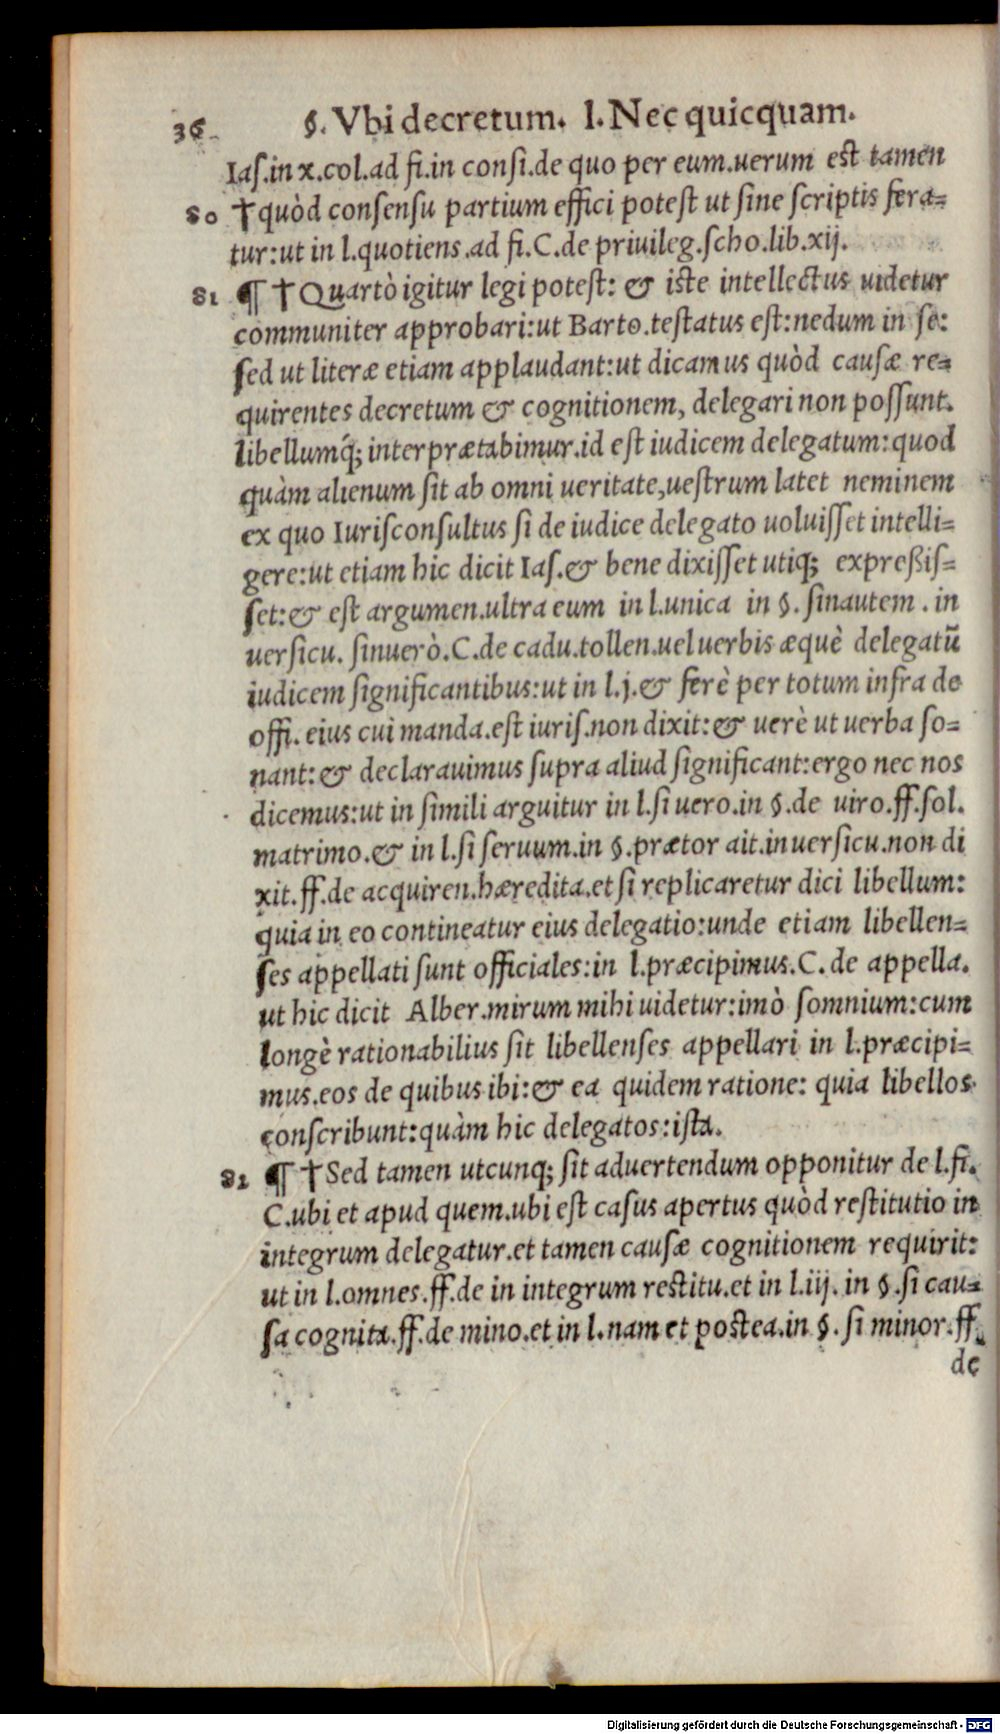 36 §. Vbi decretum. l. Nec quicquam.
Iaſ.in x.col.ad fi.in conſi.de quo per eum.uerum est tamen
80 †quòd conſenſu partium effici poteſt ut ſine ſcriptis fera-
tur:ut in l.quotiens.ad fi.C.de priuileg.ſcho.lib.xij.
81 ¶ †Quartò igitur legi poteſt: & iſte intellectus uidetur
communiter approbari:ut Barto.teſtatus eſt:nedum in ſe:
ſed ut literæ etiam applaudant:ut dicamus quòd cauſæ re-
quirentes decretum & cognitionem, delegari non poſſunt.
libellumq́; interprætabimur.id eſt iudicem delegatum:quod
quàm alienum ſit ab omni ueritate,ueſtrum latet neminem
ex quo Iuriſconſultus ſi de iudice delegato uoluiſſet intelli-
gere:ut etiam hic dicit Iaſ.& bene dixiſſet utiq; expreßiſ-
ſet:& eſt argumen.ultra eum in l.unica in §. ſinautem . in
uerſicu. ſinuerò.C.de cadu.tollen.uel uerbis æquè delegatū
iudicem ſignificantibus:ut in l.j.& ferè per totum infra de
offi. eius cui manda.eſt iuriſ.non dixit:& uerè ut uerba ſo-
nant:& declarauimus ſupra aliud ſignificant:ergo nec nos
dicemus:ut in ſimili arguitur in l.ſi uero.in §.de uiro.ff.ſol.
matrimo.& in l.ſi ſeruum.in §.prætor ait.in uerſicu.non di
xit.ff.de acquiren.hæredita.et ſi replicaretur dici libellum:
quia in eo contineatur eius delegatio:unde etiam libellen-
ſes appellati ſunt officiales:in l.præcipimus.C. de appella.
ut hic dicit Alber.mirum mihi uidetur:imò ſomnium:cum
longè rationabilius ſit libellenſes appellari in l.præcipi-
mus.eos de quibus ibi:& ea quidem ratione: quia libellos
conſcribunt:quàm hic delegatos:iſta.
82 ¶ †Sed tamen utcunq; ſit aduertendum opponitur de l.fi.
C.ubi et apud quem.ubi eſt caſus apertus quòd reſtitutio in
integrum delegatur.et tamen cauſæ cognitionem requirit:
ut in l.omnes.ff.de in integrum reſtitu.et in l.iij. in §.ſi cau-
ſa cognita.ff.de mino.et in l.nam et postea.in §. ſi minor.ff.
de
Digitalisierung gefördert durch die Deutsche Forschungsgemeinschaft - DFG